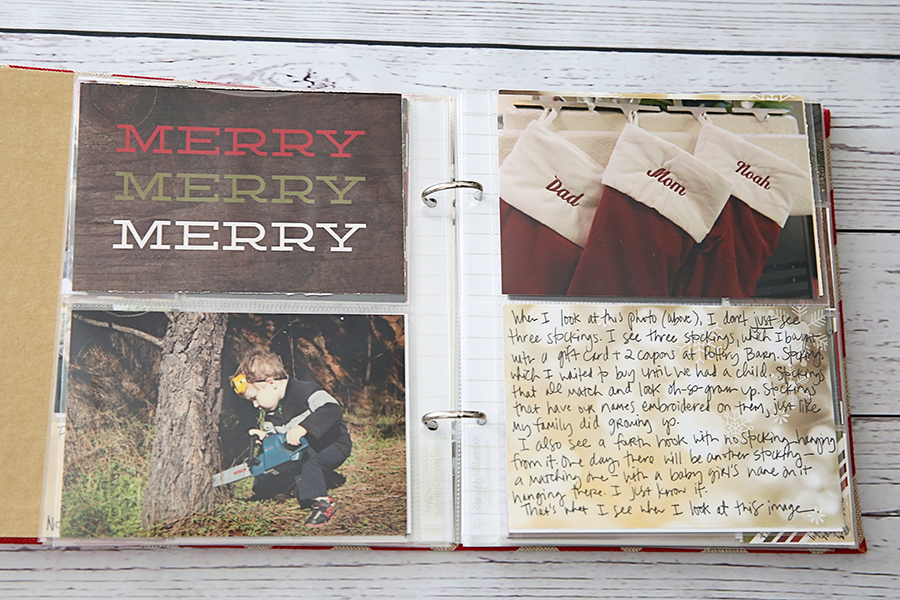 MERRY
MERRY
MERRY
Dad
Mom
Noah
When I look at this photo (above), I don't just see
three stockings. I see three stockings, which I bought
with a gift card + 2 coupons at Pottery Barn. Stockings
which I waited to buy until we had a child. Stockings
that all match and look oh-so-grown up. Stockings
that have our names embroidered on them, just like
my family did growing up.
I also see a fourth hook with no stocking hanging
from it. One day, there will be another stocking -
a matching one - with a baby girl's name on it
hanging there. I just know it.
That's what I see when I look at this image.